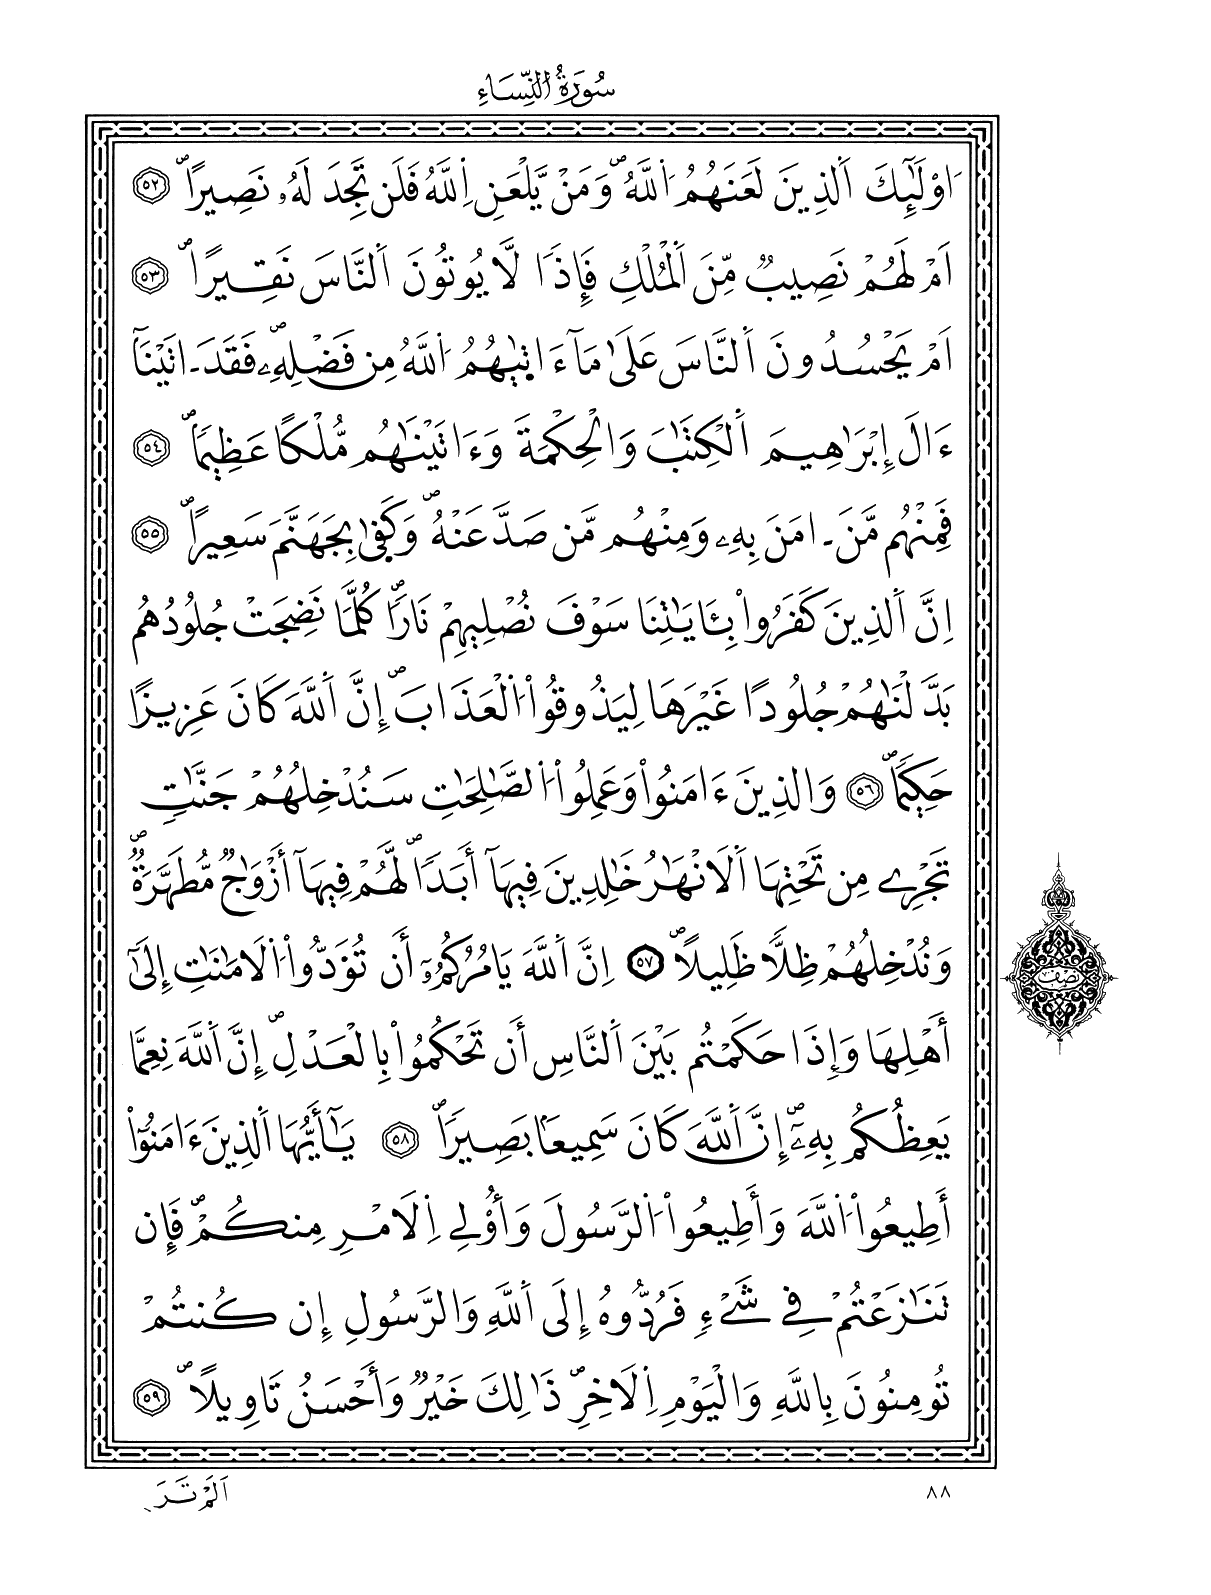 سُورَةُ النِّسَاءِ
اُوْلَٰٓئِكَ اَ۬لذِينَ لَعَنَهُمُ اُ۬للَّهُۖ وَمَنْ يَّلْعَنِ اِ۬للَّهُ فَلَن تَجِدَ لَهُۥ نَصِيراًۖ ٥٢
اَمْ لَهُمْ نَصِيبٞ مِّنَ اَ۬لْمُلْكِ فَإِذاٗ لَّا يُوتُونَ اَ۬لنَّاسَ نَقِيراًۖ ٥٣
اَمْ يَحْسُدُونَ اَ۬لنَّاسَ عَلَىٰ مَآ ءَاتٜىٰهُمُ اُ۬للَّهُ مِن فَضْلِهِۦۖ فَقَدَ ـ اتَيْنَآ
ءَالَ إِبْرَٰهِيمَ اَ۬لْكِتَٰبَ وَالْحِكْمَةَ وَءَاتَيْنَٰهُم مُّلْكاً عَظِيماٗۖ ٥٤
فَمِنْهُم مَّنَ ـ امَنَ بِهِۦ وَمِنْهُم مَّن صَدَّ عَنْهُۖ وَكَفٜىٰ بِجَهَنَّمَ سَعِيراًۖ ٥٥
اِنَّ اَ۬لذِينَ كَفَرُواْ بِـَٔايَٰتِنَا سَوْفَ نُصْلِيهِمْ نَاراٗۖ كُلَّمَا نَضِجَتْ جُلُودُهُم
بَدَّلْنَٰهُمْ جُلُوداً غَيْرَهَا لِيَذُوقُواْ اُ۬لْعَذَابَۖ إِنَّ اَ۬للَّهَ كَانَ عَزِيزاً
حَكِيماٗۖ ٥٦ وَالذِينَ ءَامَنُواْ وَعَمِلُواْ اُ۬لصَّٰلِحَٰتِ سَنُدْخِلُهُمْ جَنَّٰتٖ
تَجْرِے مِن تَحْتِهَا اَ۬لَانْهَٰرُ خَٰلِدِينَ فِيهَآ أَبَداٗۖ لَّهُمْ فِيهَآ أَزْوَٰجٞ مُّطَهَّرَةٞۖ
وَنُدْخِلُهُمْ ظِلّاٗ ظَلِيلاًۖ ٥٧ اِنَّ اَ۬للَّهَ يَامُرُكُمُۥٓ أَن تُؤَدُّواْ اُ۬لَامَٰنَٰتِ إِلَىٰٓ
أَهْلِهَا وَإِذَا حَكَمْتُم بَيْنَ اَ۬لنَّاسِ أَن تَحْكُمُواْ بِالْعَدْلِۖ إِنَّ اَ۬للَّهَ نِعِمَّا
يَعِظُكُم بِهِۦٓۖ إِنَّ اَ۬للَّهَ كَانَ سَمِيعاَۢ بَصِيراٗۖ ٥٨ يَٰٓأَيُّهَا اَ۬لذِينَ ءَامَنُوٓاْ
أَطِيعُواْ اُ۬للَّهَ وَأَطِيعُواْ اُ۬لرَّسُولَ وَأُوْلِے اِ۬لَامْرِ مِنكُمْۖ فَإِن
تَنَٰزَعْتُمْ فِے شَےْءٖ فَرُدُّوهُ إِلَى اَ۬للَّهِ وَالرَّسُولِ إِن كُنتُمْ
تُومِنُونَ بِاللَّهِ وَالْيَوْمِ اِ۬لَاخِرِۖ ذَٰلِكَ خَيْرٞ وَأَحْسَنُ تَاوِيلاًۖ ٥٩
نصف
٨٨
اَلَمْ تَرَ